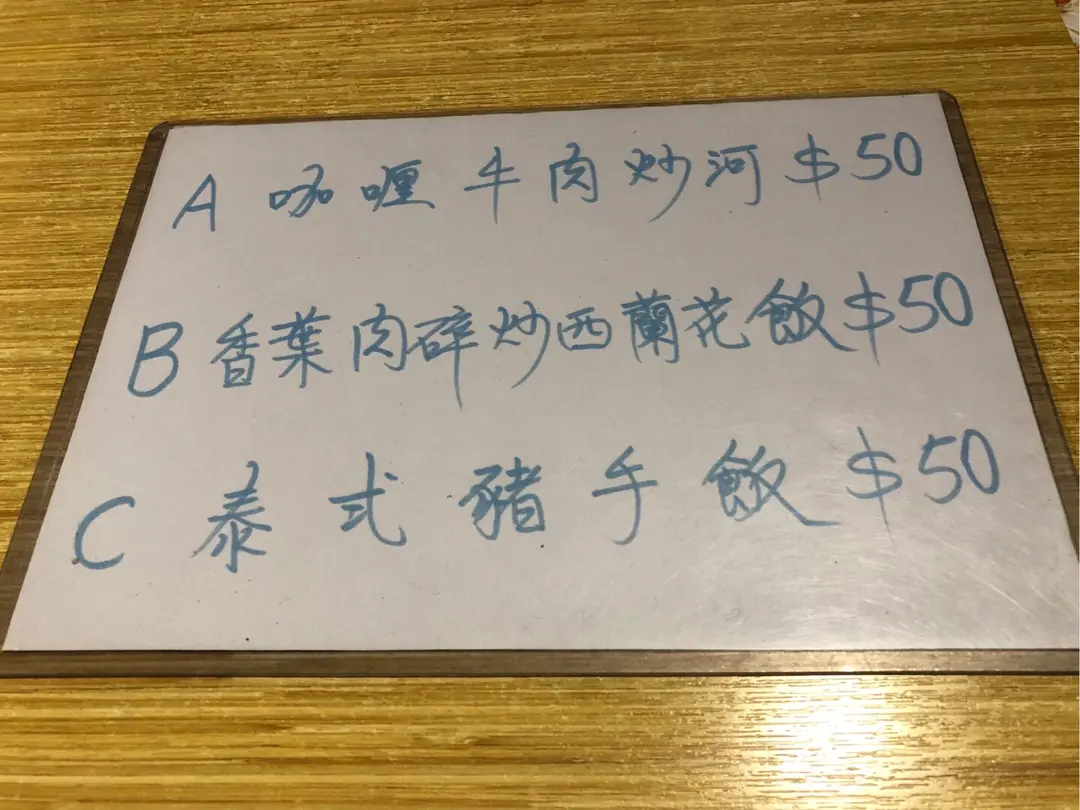 A 咖喱牛肉炒河 $50
B 香葉肉碎炒西蘭花飯 $50
C 泰式豬手飯 $50